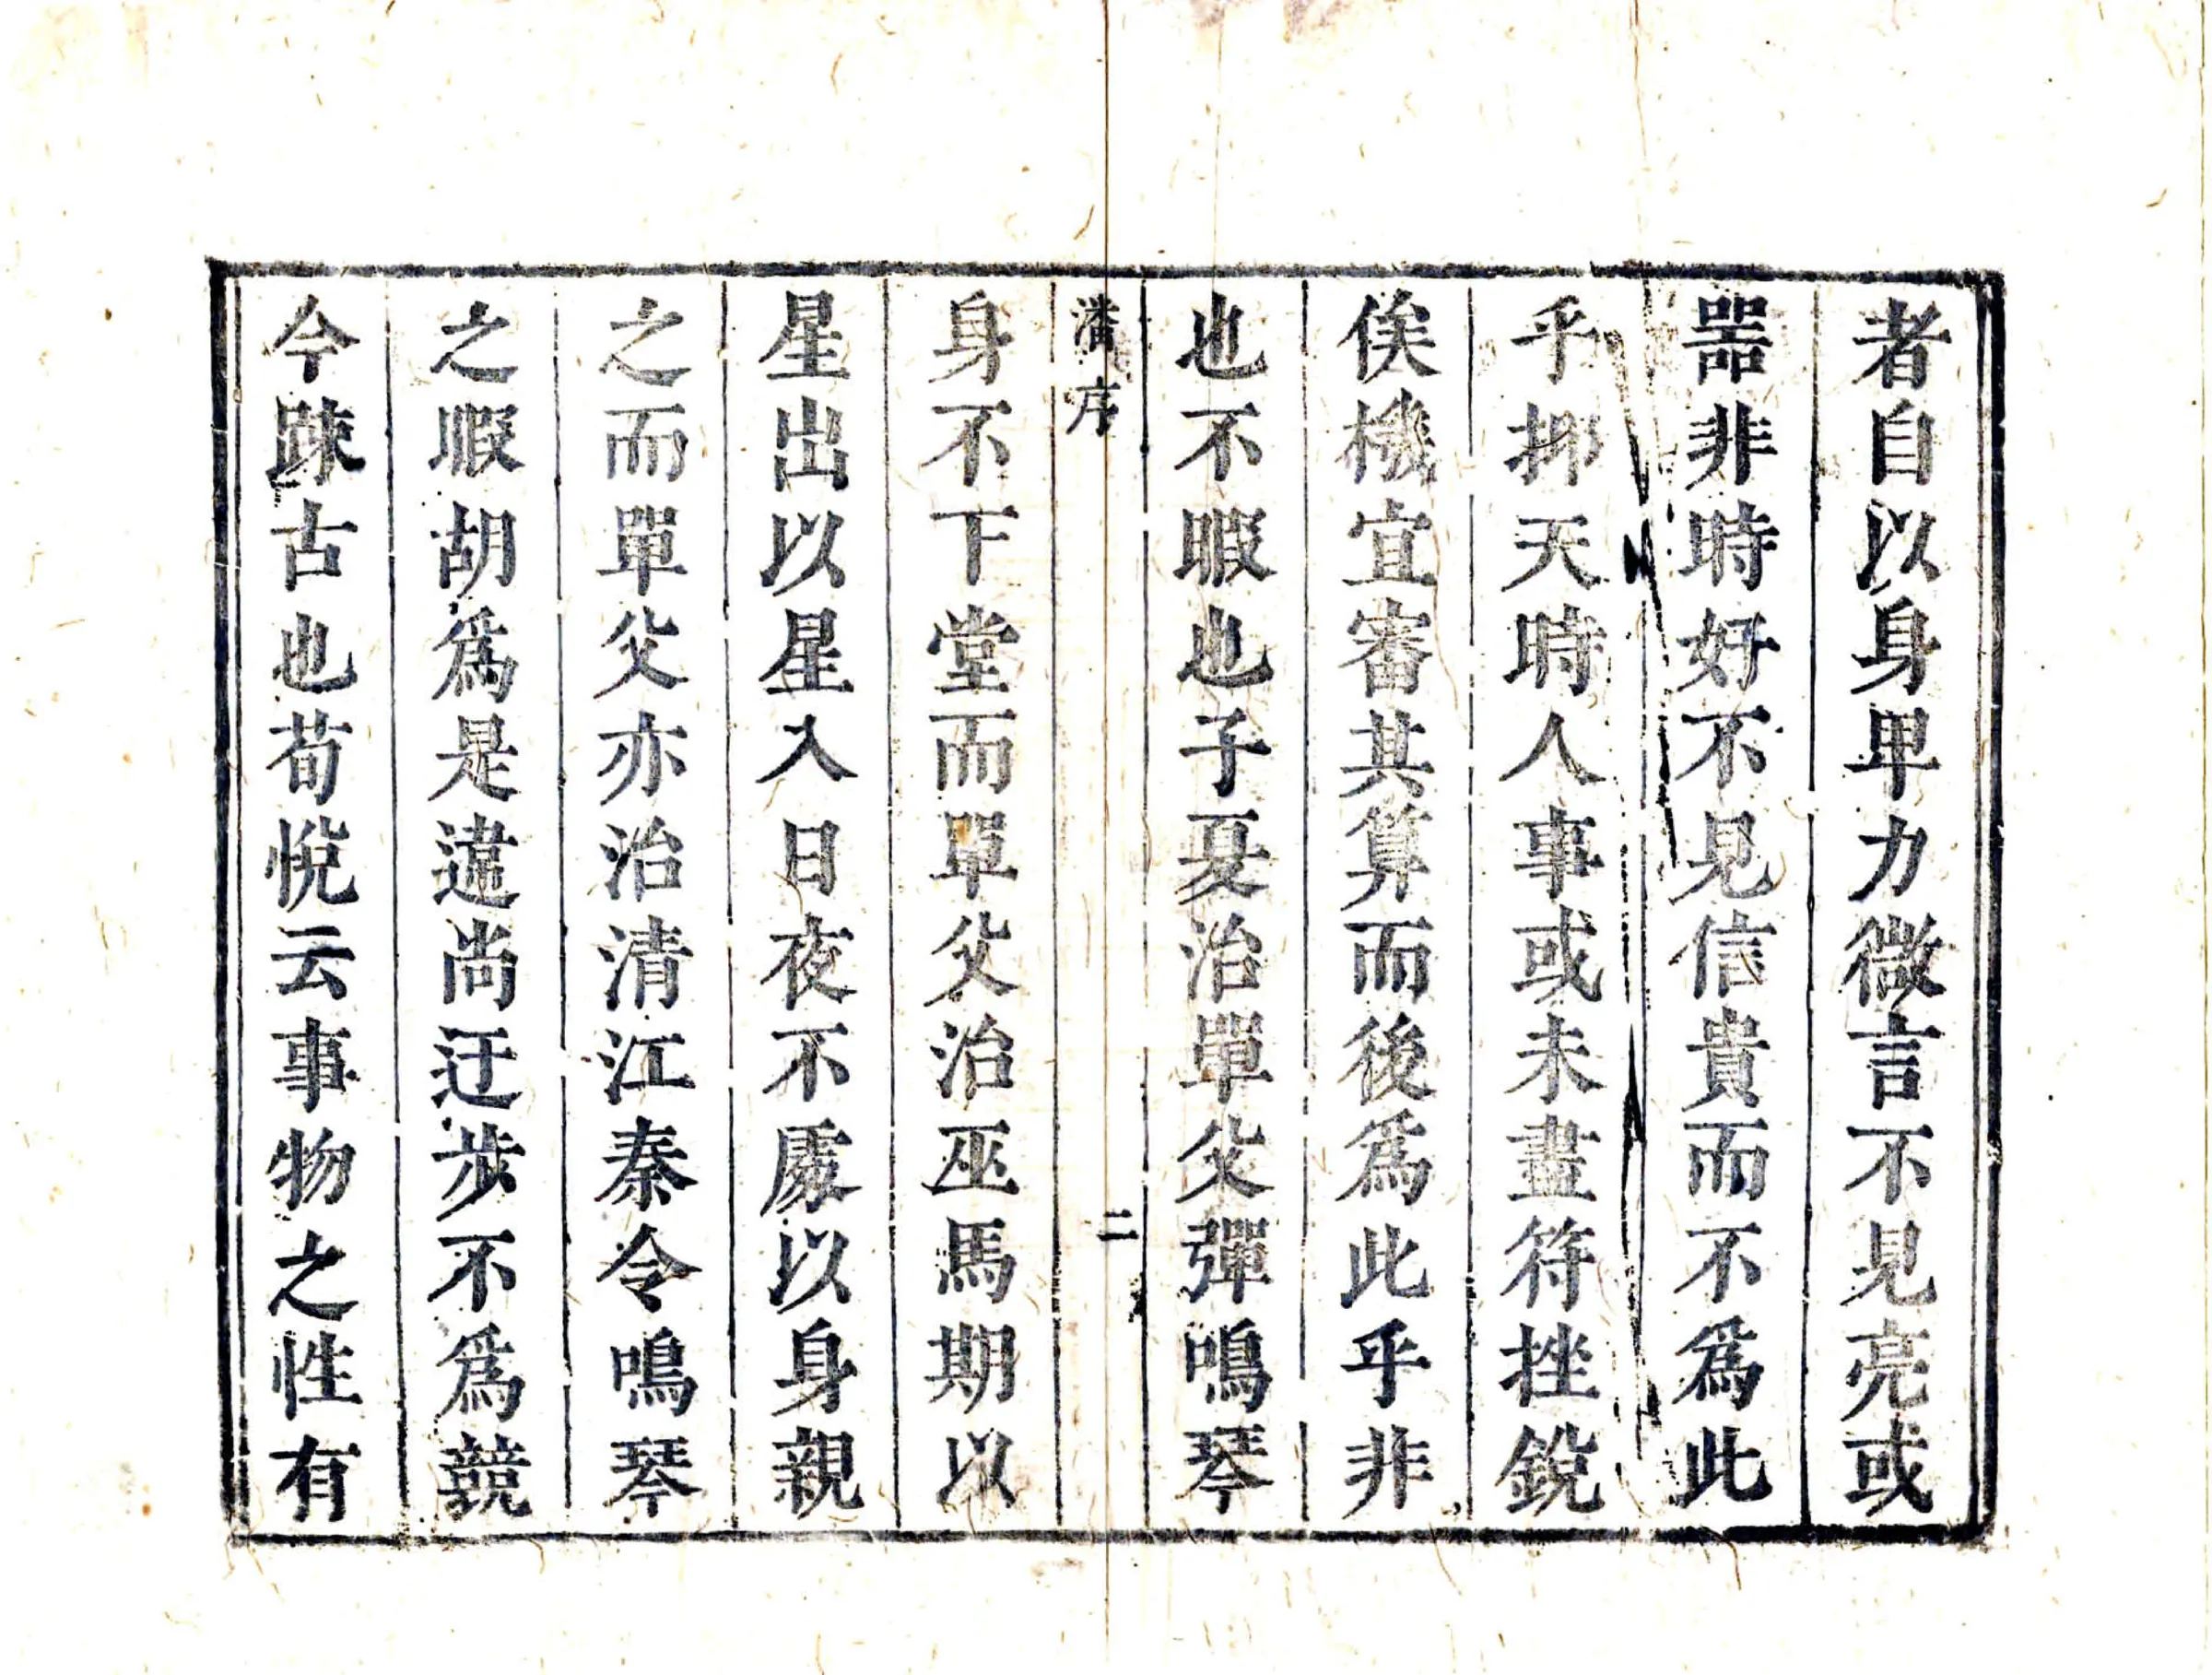 者自以身卑力微言不見亮或
噐非時好不見信貴而不爲此
乎抑天時人事或未盡符挫銳
俟機宜審其算而後爲此乎非
也不暇也子憂治單父彈鳴琴
潘序
二
身不下堂而單父治巫馬期以
星出以星入日夜不處以身親
之而單父亦治清江秦令鳴琴
之暇胡爲是違尚迂步不爲競
今踈古也荀悅云事物之性有